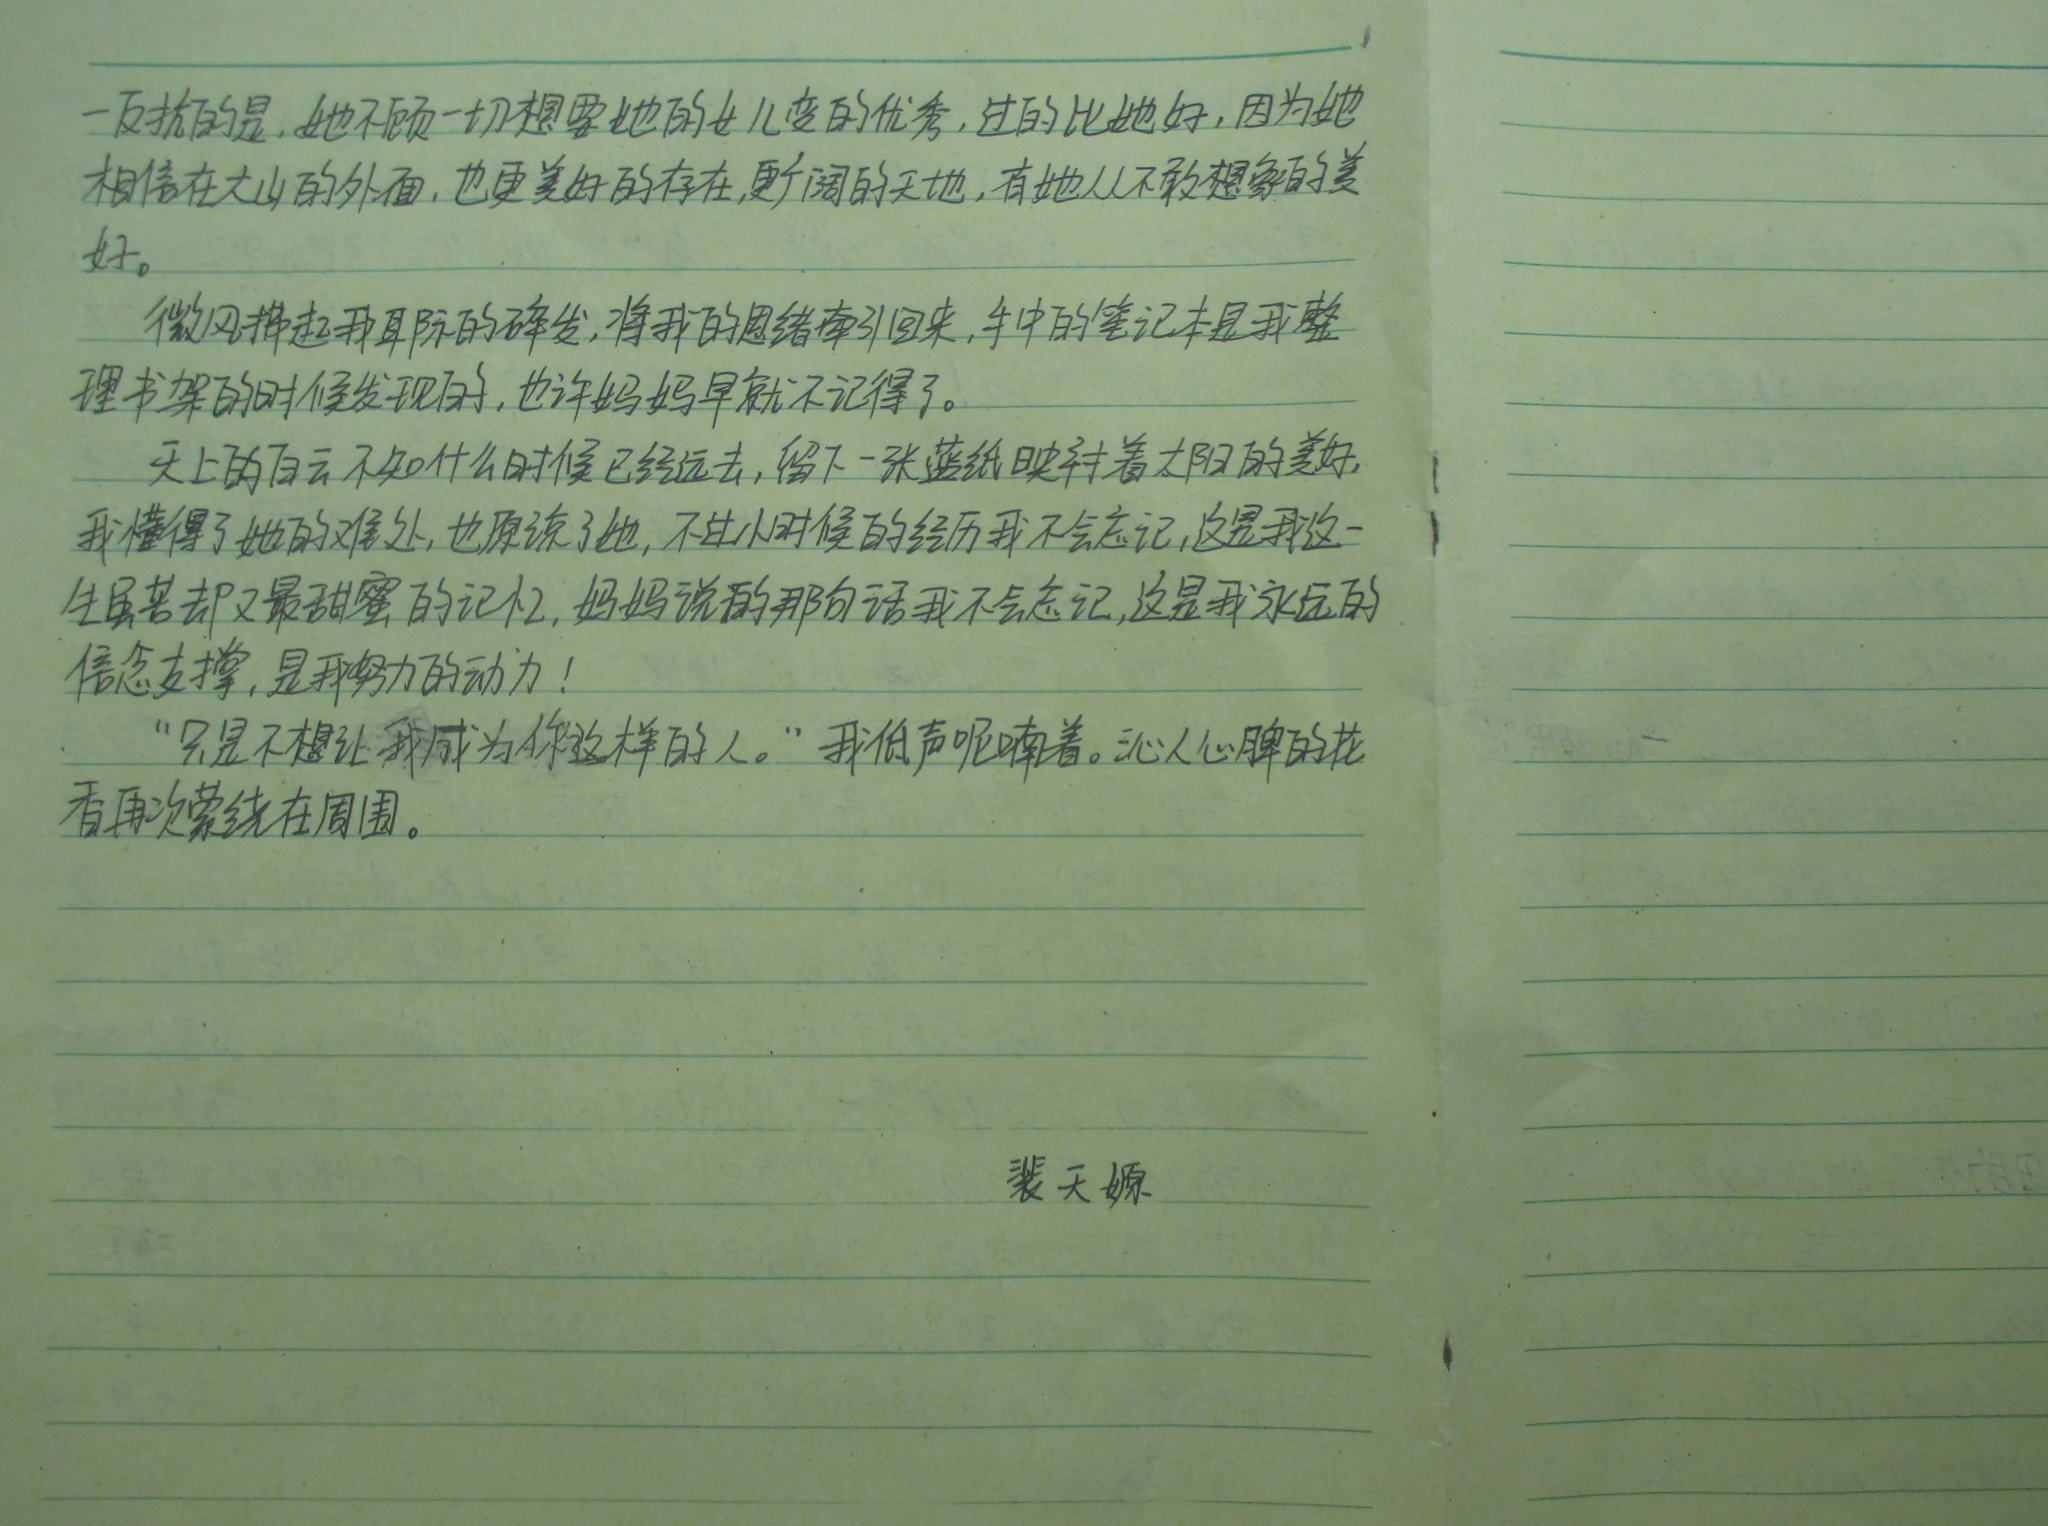 一反抗的是，她不顾一切想要她的女儿变的优秀，过的比她好，因为她
相信在大山的外面，也更美好的存在，更广阔的天地，有她从不敢想象的美
好。
微风拂起我耳际的碎发，将我的思绪牵引回来，手中的笔记本是我整
理书架的时候发现的，也许妈妈早就不记得了。
天上的白云不知什么时候已经远去，留下一张蓝纸映衬着太阳的美好，
我懂得了她的难处，也原谅了她，不过小时候的经历我不会忘记，这是我这一
生虽苦却又最甜蜜的记忆，妈妈说的那句话我不会忘记，这是我永远的
信念支撑，是我努力的动力！
“只是不想让我成为你这样的人。”我低声呢喃着。沁人心脾的花
香再次萦绕在周围。
裴天嫄